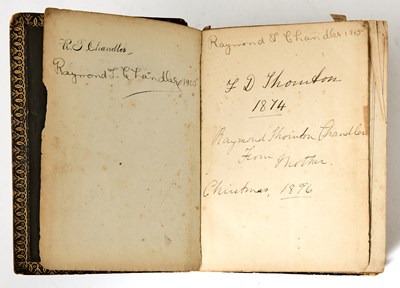 R. T. Chandler
Raymond T. Chandler 1905
Raymond T Chandler 1905
F D Thornton
1874
Raymond Thornton Chandler
From Mother.
Christmas, 1896